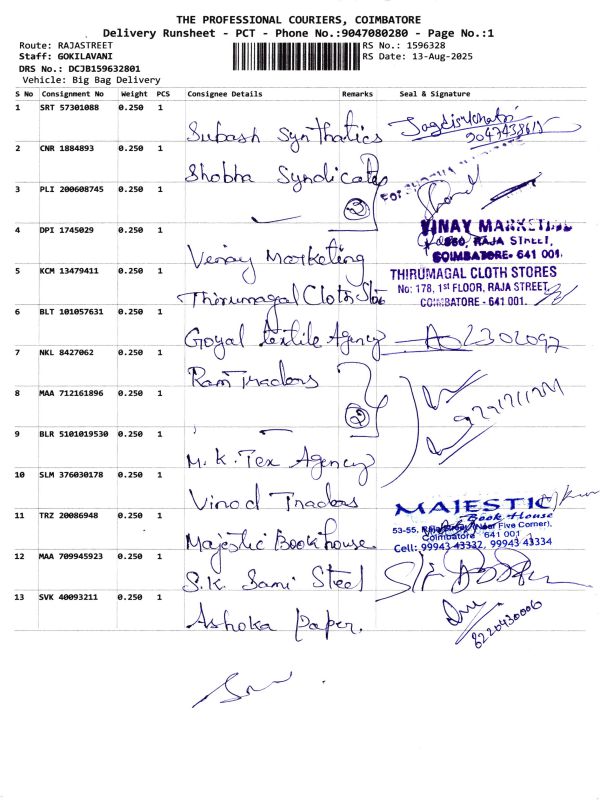 THE PROFESSIONAL COURIERS, COIMBATORE
Delivery Runsheet - PCT - Phone No.:9047080280 - Page No.:1
Route: RAJASTREET
RS No.: 1596328
Staff: GOKILAVANI
RS Date: 13-Aug-2025
DRS No.: DCJB159632801
Vehicle: Big Bag Delivery
S No Consignment No Weight PCS Consignee Details Remarks Seal & Signature
1 SRT 57301088 0.250 1 Subash Synthatics
2 CNR 1884893 0.250 1 Shobha Syndicates
3 PLI 200608745 0.250 1 2
4 DPI 1745029 0.250 1 Vinay Marketing
VINAY
RAJA STREET,
COIMBATORE- 641 001.
5 KCM 13479411 0.250 1 Thirumagal Cloth
THIRUMAGAL CLOTH STORES
No: 178, 1ST FLOOR, RAJA STREET,
COIMBATORE - 641 001.
6 BLT 101057631 0.250 1 Goyal textile Agency
7 NKL 8427062 0.250 1 Ram Tradors
8 MAA 712161896 0.250 1 2
9 BLR 5101019530 0.250 1 M.K. Tex Agency
10 SLM 376030178 0.250 1 Vinod Tradors
11 TRZ 20086948 0.250 1 Majestic Book house
MAJESTIC
Book House
53-55, (Near Five Corner),
Coimbatore 641 001
Cell: 99943 43332, 99943 43334
12 MAA 709945923 0.250 1 S.K. Sami Steel
13 SVK 40093211 0.250 1 Ashoka Paper.
8220430006